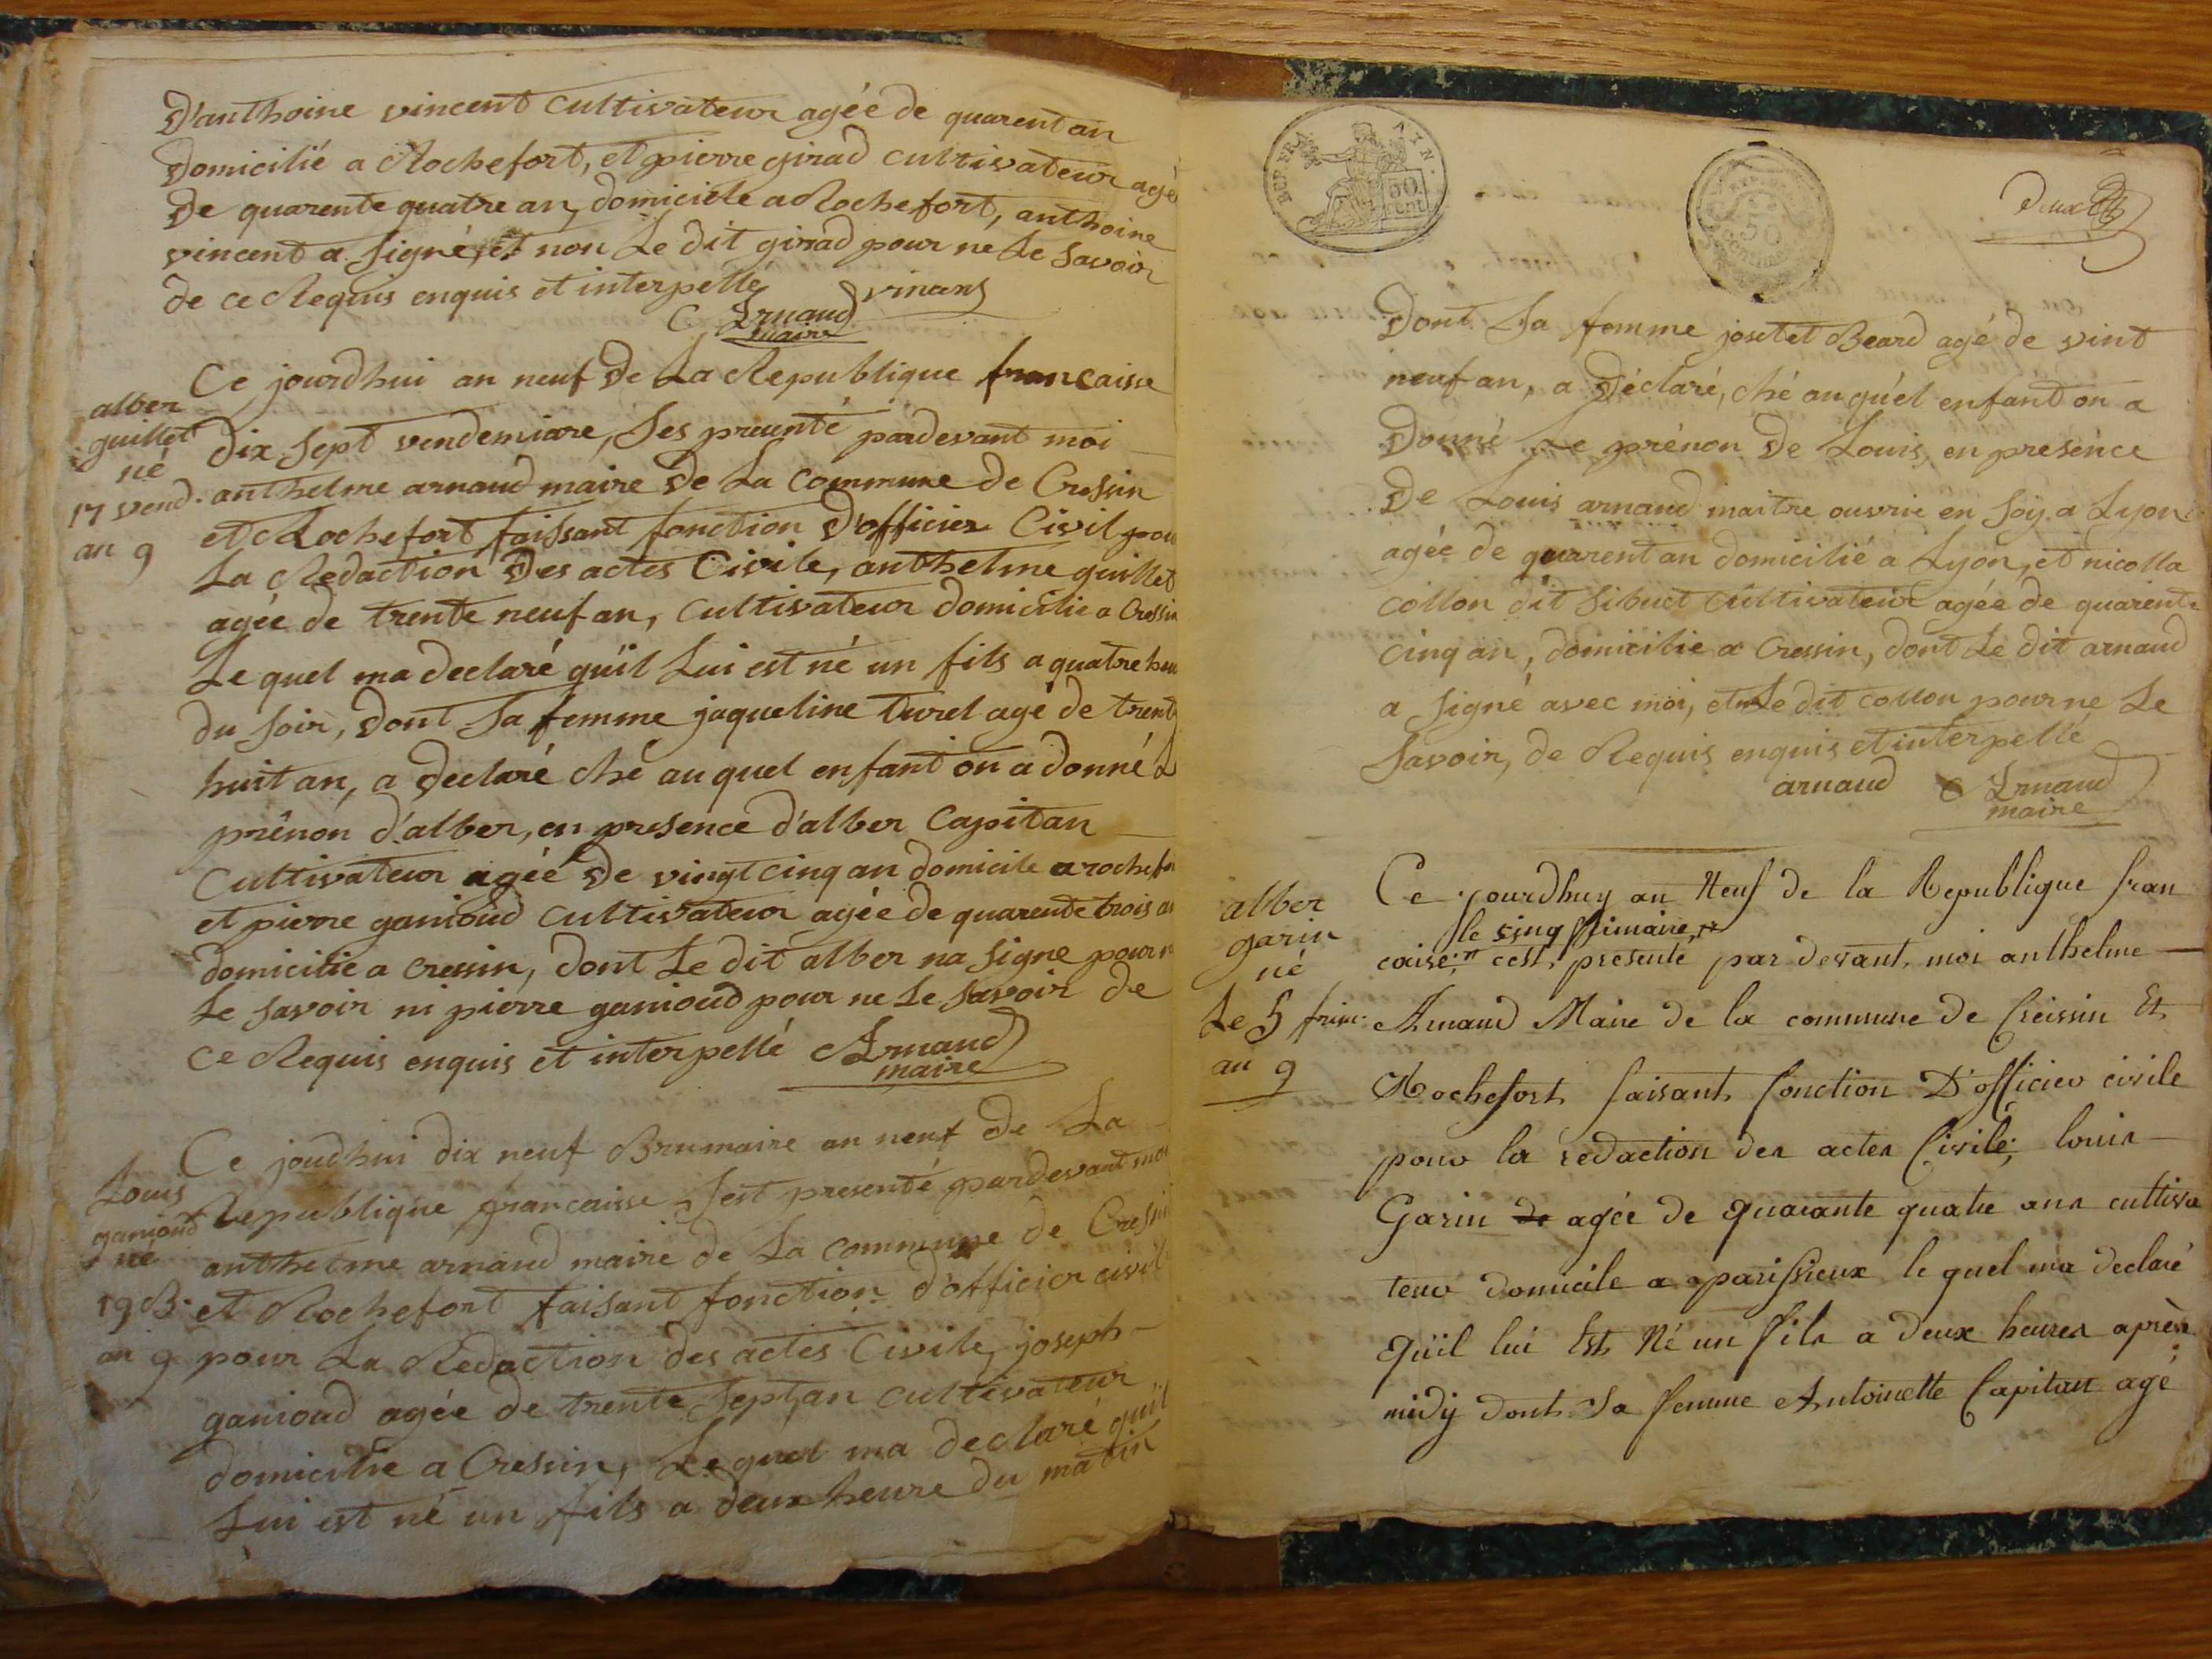 D'anthoine vincent cultivateur agée de quarent an
Domicilié a Rochefort, et pierre girad cultivateur agé
De quarente quatre an, domiciele a Rochefort, anthoine
vincent a signé, et non Le dit girad pour ne Le savoir
de ce Requis enquis et interpellé vinans
Arnaud
maire
alber
guillet
né
17 vend.
an 9
Ce jourdhui an neuf De La Republique francaisse
dix sept vendemiare, ses presenté pardevant moi
anthelme arnaud maire De La Commune de Cressin
et Rochefort faissant fonction D'officier Civil pou
La Redaction Des actes Civile, anthelme guillet
agée de trente neuf an, cultivateur domicilie a Cressin
Le quel ma declaré qu'il Lui est né un fils a quatre heu
du soir, Dont sa femme jaqueline turel agé de trent
huit an, a Declaré ché au quel enfant on a donné L
prénon d'alber, en presence d'alber Capitan
Cultivateur agée De vingt cinq an domicile a rochefor
et pierre ganioud cultivateur agée de quarente trois an
domicilie a cressin, Dont Le dit alber na signe pour n
Le savoir ni pierre ganioud pour ne Le savoir de
Ce Requis enquis et interpellé Arnaud
maire
Louis
ganioud
né
19 B.
an 9
Ce joudhui dix neuf Brumaire an neuf de La
Republique francaisse, s'est presenté pardevant moi
anthelme arnaud maire de La commune de Cressin
et Rochefort faisant fonction d'officier civil
pour La Redaction des actes Civile, joseph
ganioud agée de trente sept an cultivateur
domicilie a Cressin, Le quel ma declaré qu'il
Lui est né un fils a deux heure du matin
REP. FRA. AYN.
50
cent
50
Deux
Dont sa femme josetet Beard agé de vint
neuf an, a Déclaré, ché au qu'el enfant on a
Donné Le prénon De Louis, en presénce
De Louis arnaud maitre ouvrie en soy a Lyon
agée de quarent an domicilié a Lyon, et nicolla
collon dit sibuet cultivateur agée de quarente
cinq an, domicilie a Cressin, dont Le dit arnaud
a signé avec moi, et Le dit collon pour ne Le
savoir, de Requis enquis et interpellé
arnaud Arnaud
maire
alber
garin
né
Le 5 frim.
an 9
Ce jourdhuy an Neuf de la Republique fran
le sinq frimaire,
caise, cest, presente par devant, moi anthelme
Arnaud Maire de la commune de Creissin Et
Rochefort, faisant, fonction D'officier civile
pour la redaction des actes Civile, louis
Garin de agée de quarante quatre ans cultiva
teur domicile a parissieux le quel ma declaré
qu'il lui Est, Né un fils a deux heures après
midy dont, sa femme Antoinette Capitan agé